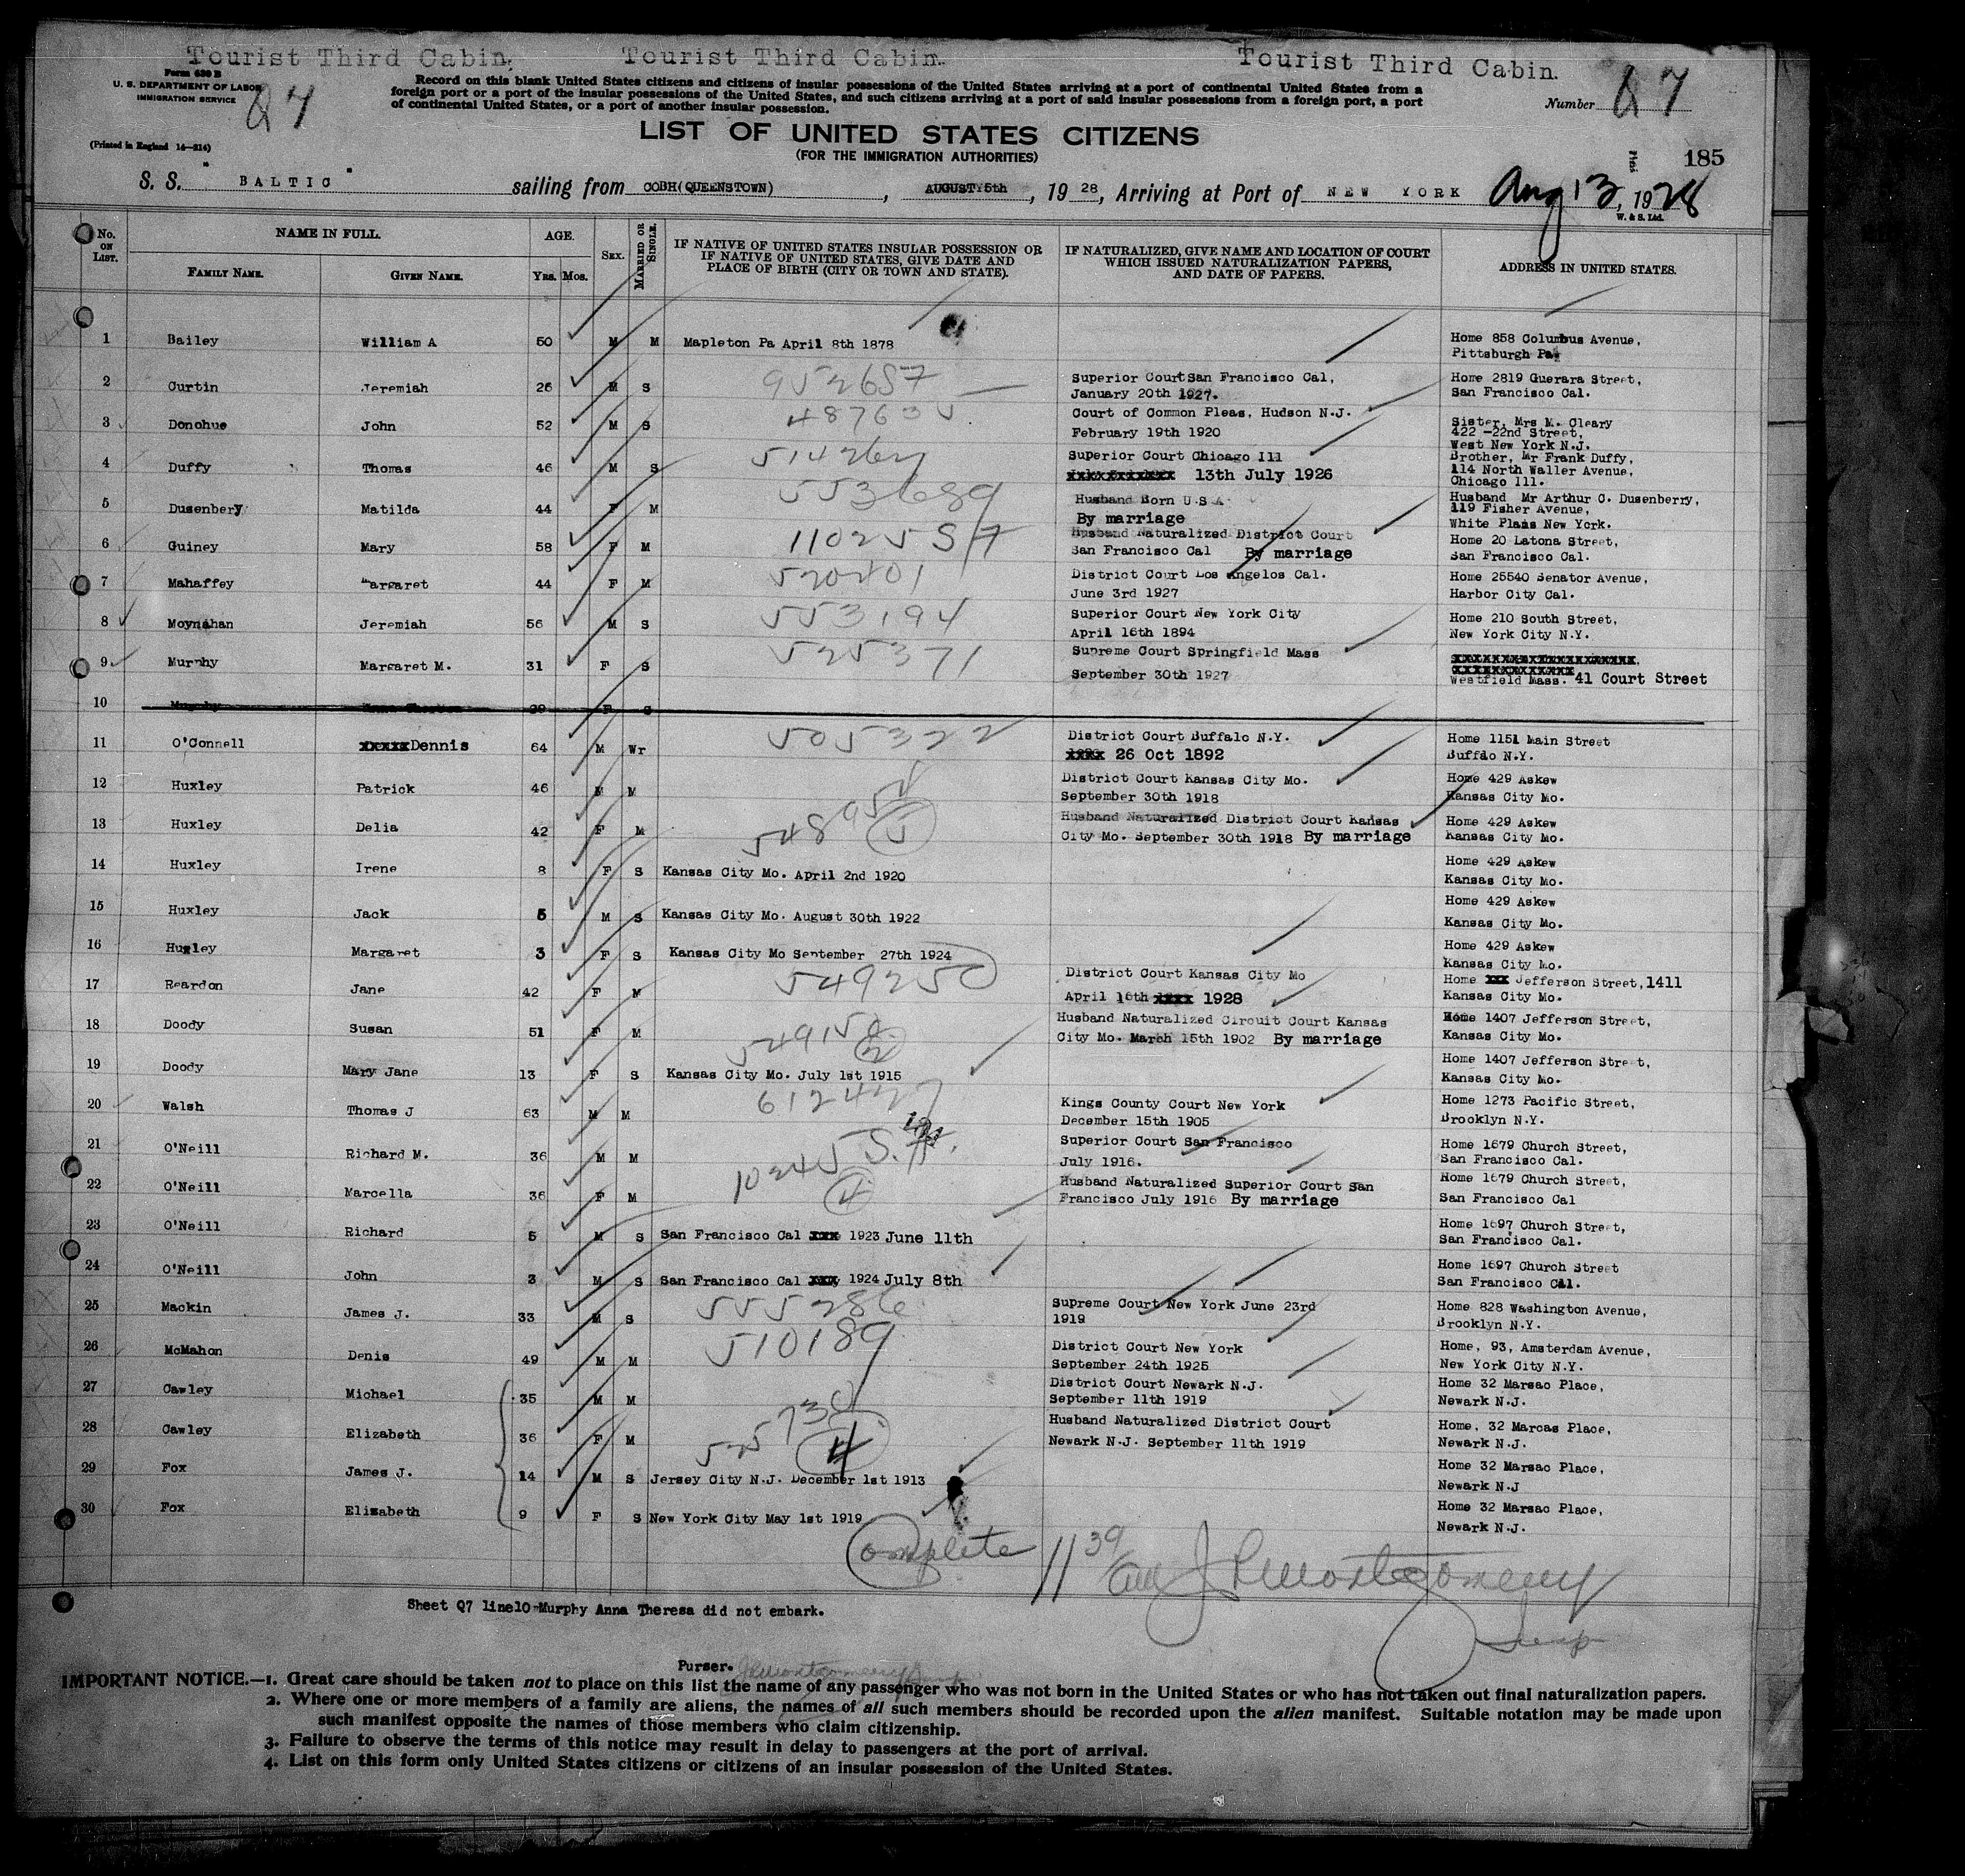 Tourist Third Cabin. Tourist Third Cabin. Tourist Third Cabin.
Form 630 B
U. S. DEPARTMENT OF LABOR
IMMIGRATION SERVICE
Q 7
(Printed in England 14—214)
Record on this blank United States citizens and citizens of insular possessions of the United States arriving at a port of continental United States from a
foreign port or a port of the insular possessions of the United States, and such citizens arriving at a port of said insular possessions from a foreign port, a port
of continental United States, or a port of another insular possession.
Number Q 7
LIST OF UNITED STATES CITIZENS
(FOR THE IMMIGRATION AUTHORITIES)
185
S. S. " BALTIC " sailing from COBH(QUEENSTOWN), AUGUST 5th, 19 28, Arriving at Port of NEW YORK Aug 13, 1928
W. & S. Ltd.
No. ON LIST. NAME IN FULL. FAMILY NAME. GIVEN NAME. AGE. YRS. MOS. SEX. MARRIED OR SINGLE.
IF NATIVE OF UNITED STATES INSULAR POSSESSION OR
IF NATIVE OF UNITED STATES, GIVE DATE AND
PLACE OF BIRTH (CITY OR TOWN AND STATE).
IF NATURALIZED, GIVE NAME AND LOCATION OF COURT
WHICH ISSUED NATURALIZATION PAPERS,
AND DATE OF PAPERS.
ADDRESS IN UNITED STATES.
1 Bailey William A 50 M M Mapleton Pa April 8th 1878 Home 858 Columbus Avenue,
Pittsburgh Pa.
2 Curtin Jeremiah 26 M S 952657 Superior Court San Francisco Cal, Home 2819 Guerara Street,
January 20th 1927. San Francisco Cal.
3 Donohue John 52 M S 487635 Court of Common Pleas, Hudson N.J. Sister, Mrs M. Cleary
February 19th 1920 422 -22nd Street,
West New York N.J.
4 Duffy Thomas 46 M S Superior Court Chicago Ill Brother, Mr Frank Duffy,
13th July 1926 114 North Waller Avenue,
Chicago Ill.
5 Dusenbery Matilda 44 F M 553689 Husband Born U.S.A. Husband Mr Arthur C. Dusenberry,
By marriage 119 Fisher Avenue,
White Plais New York.
6 Guiney Mary 58 F M 11025 Husband Naturalized District Court Home 20 Latona Street,
San Francisco Cal By marriage San Francisco Cal.
7 Mahaffey Margaret 44 F M 520401 District Court Los Angelos Cal. Home 25540 Senator Avenue,
June 3rd 1927 Harbor City Cal.
8 Moynahan Jeremiah 56 M S 553194 Superior Court New York City Home 210 South Street,
April 16th 1894 New York City N.Y.
9 Murphy Margaret M. 31 F S 525371 Supreme Court Springfield Mass
September 30th 1927 Westfield Mass. 41 Court Street
10 Murphy Anna Theresa 29 F S
11 O'Connell Dennis 64 M Wr 505322 District Court Buffalo N.Y. Home 1151 Main Street
26 Oct 1892 Buffao N.Y.
12 Huxley Patrick 46 M M District Court Kansas City Mo. Home 429 Askew
September 30th 1918 Kansas City Mo.
13 Huxley Delia 42 F M 5 Husband Naturalized District Court Kansas Home 429 Askew
City Mo. September 30th 1918 By marriage Kansas City Mo.
14 Huxley Irene 8 F S Kansas City Mo. April 2nd 1920 Home 429 Askew
Kansas City Mo.
15 Huxley Jack 5 M S Kansas City Mo. August 30th 1922 Home 429 Askew
Kansas City Mo.
16 Huxley Margaret 3 F S Kansas City Mo September 27th 1924 Home 429 Askew
Kansas City Mo.
17 Reardon Jane 42 F M 549250 District Court Kansas City Mo Home Jefferson Street, 1411
April 16th 1928 Kansas City Mo.
18 Doody Susan 51 F M 2 Husband Naturalized Circuit Court Kansas Home 1407 Jefferson Street,
City Mo. March 15th 1902 By marriage Kansas City Mo.
19 Doody Mary Jane 13 F S Kansas City Mo. July 1st 1915 Home 1407 Jefferson Street,
Kansas City Mo.
20 Walsh Thomas J 63 M M Kings County Court New York Home 1273 Pacific Street,
December 15th 1905 Brooklyn N.Y.
21 O'Neill Richard M. 36 M M Superior Court San Francisco Home 1679 Church Street,
July 1916. San Francisco Cal.
22 O'Neill Marcella 36 F M 4 Husband Naturalized Superior Court San Home 1679 Church Street,
Francisco July 1916 By marriage San Francisco Cal
23 O'Neill Richard 5 M S San Francisco Cal 1923 June 11th Home 1697 Church Street,
San Francisco Cal.
24 O'Neill John 3 M S San Francisco Cal 1924 July 8th Home 1697 Church Street
San Francisco Cal.
25 Mackin James J. 33 M S 555286 Supreme Court New York June 23rd Home 828 Washington Avenue,
1919 Brooklyn N.Y.
26 McMahon Denis 49 M M 510189 District Court New York Home, 93, Amsterdam Avenue,
September 24th 1925 New York City N.Y.
27 Cawley Michael 35 M M District Court Newark N.J. Home 32 Marsac Place,
September 11th 1919 Newark N.J.
28 Cawley Elizabeth 36 F M 4 Husband Naturalized District Court Home, 32 Marcas Place,
Newark N.J. September 11th 1919 Newark N.J.
29 Fox James J. 14 M S Jersey City N.J. December 1st 1913 Home 32 Marsac Place,
Newark N.J
30 Fox Elizabeth 9 F S New York City May 1st 1919 Home 32 Marsac Place,
Newark N.J.
Complete 11 39 am J L Montgomery
Insp
Sheet Q7 line10-Murphy Anna Theresa did not embark.
Purser.
IMPORTANT NOTICE.—1. Great care should be taken not to place on this list the name of any passenger who was not born in the United States or who has not taken out final naturalization papers.
2. Where one or more members of a family are aliens, the names of all such members should be recorded upon the alien manifest. Suitable notation may be made upon
such manifest opposite the names of those members who claim citizenship.
3. Failure to observe the terms of this notice may result in delay to passengers at the port of arrival.
4. List on this form only United States citizens or citizens of an insular possession of the United States.